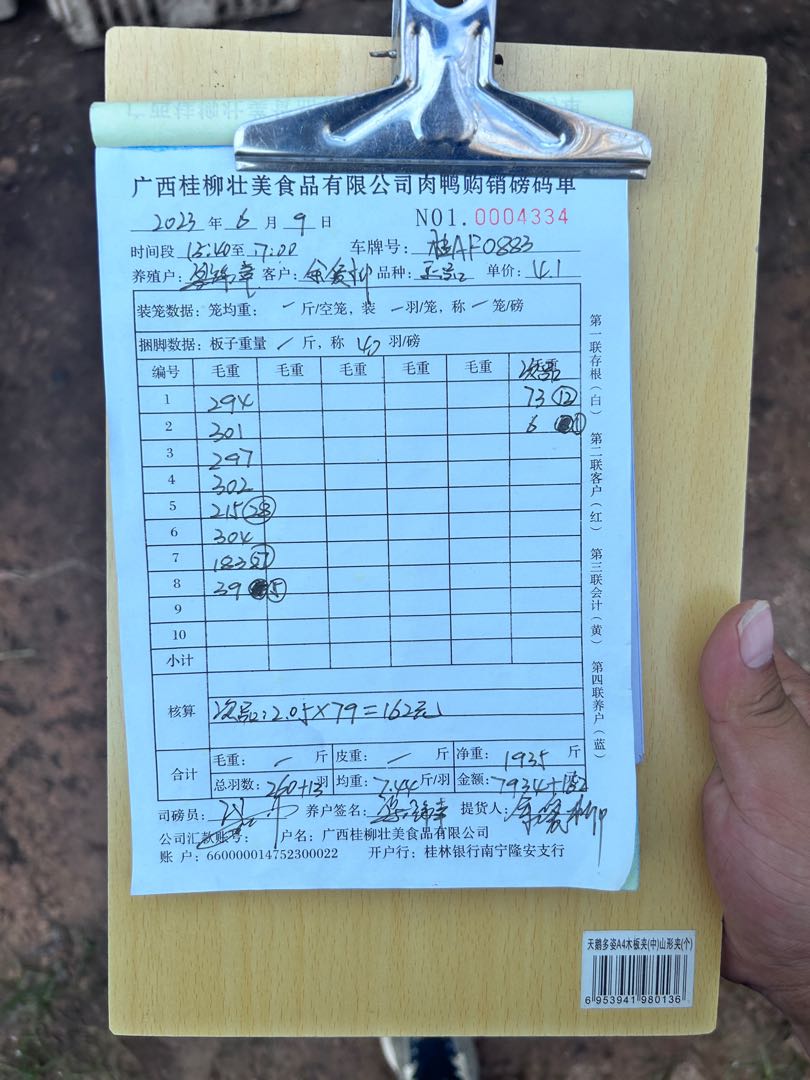 广西桂柳壮美食品有限公司肉鸭购销磅码单
2023 年 6 月 9 日 NO1.0004334
时间段 15:40至 17:00 车牌号: 桂AF0883
养殖户: 客户: 品种: 单价: 4.1
装笼数据: 笼均重: 一 斤/空笼, 装 一 羽/笼, 称 一 笼/磅
捆脚数据: 板子重量 一 斤, 称 40 羽/磅
编号 毛重 毛重 毛重 毛重 次品
1 294 73 ⑫
2 301 6 ①
3 297
4 302
5 215 ㉘
6 304
7 183
8 39 ⑤
9
10
小计
核算 次品:2.05×79=162元
合计 毛重: 一 斤 皮重: 一 斤 净重: 1935 斤
总羽数: 260+13 羽 均重: 7.44 斤/羽 金额: 7934+162
司磅员: 养户签名: 提货人:
公司汇款账号: 户名: 广西桂柳壮美食品有限公司
账 户: 660000014752300022 开户行: 桂林银行南宁隆安支行
第一联存根(白) 第二联客户(红) 第三联会计(黄) 第四联养户(蓝)
天鹅多姿A4木板夹(中)山形夹(个)
6 953941 980136